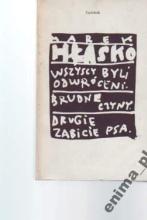 MAREK
HŁASKO
WSZYSCY BYLI
ODWRÓCENI.
BRUDNE
CZYNY.
DRUGIE
ZABICIE PSA.
enima_pl